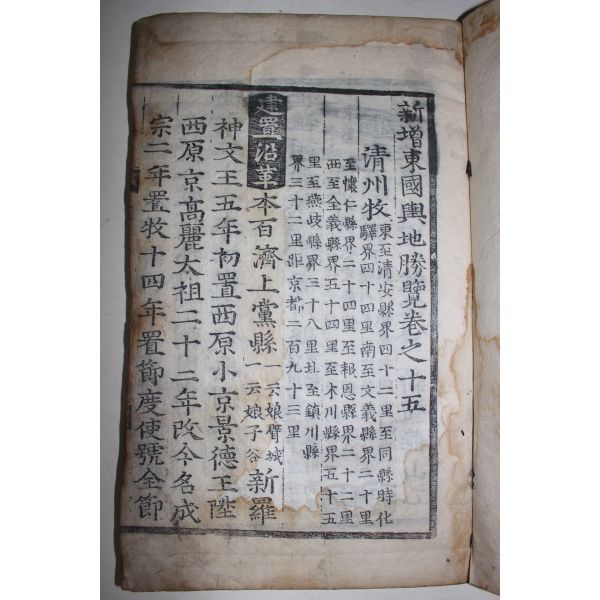 新增東國輿地勝覽卷之十五
清州牧
東至清安縣界四十二里至同縣時化
驛界四十四里南至文義縣界二十里
至懷仁縣界二十四里至報恩縣界二十二里
西至全義縣界五十四里至木川縣界五十五
里至燕岐縣界三十八里北至鎮川縣
界三十二里距京都二百九十三里
建置沿革 本百濟上黨縣 一云娘臂城 一云娘子谷 新羅
神文王五年初置西原小京景德王陞
西原京高麗太祖二十三年改今名成
宗二年置牧十四年置節度使號全節